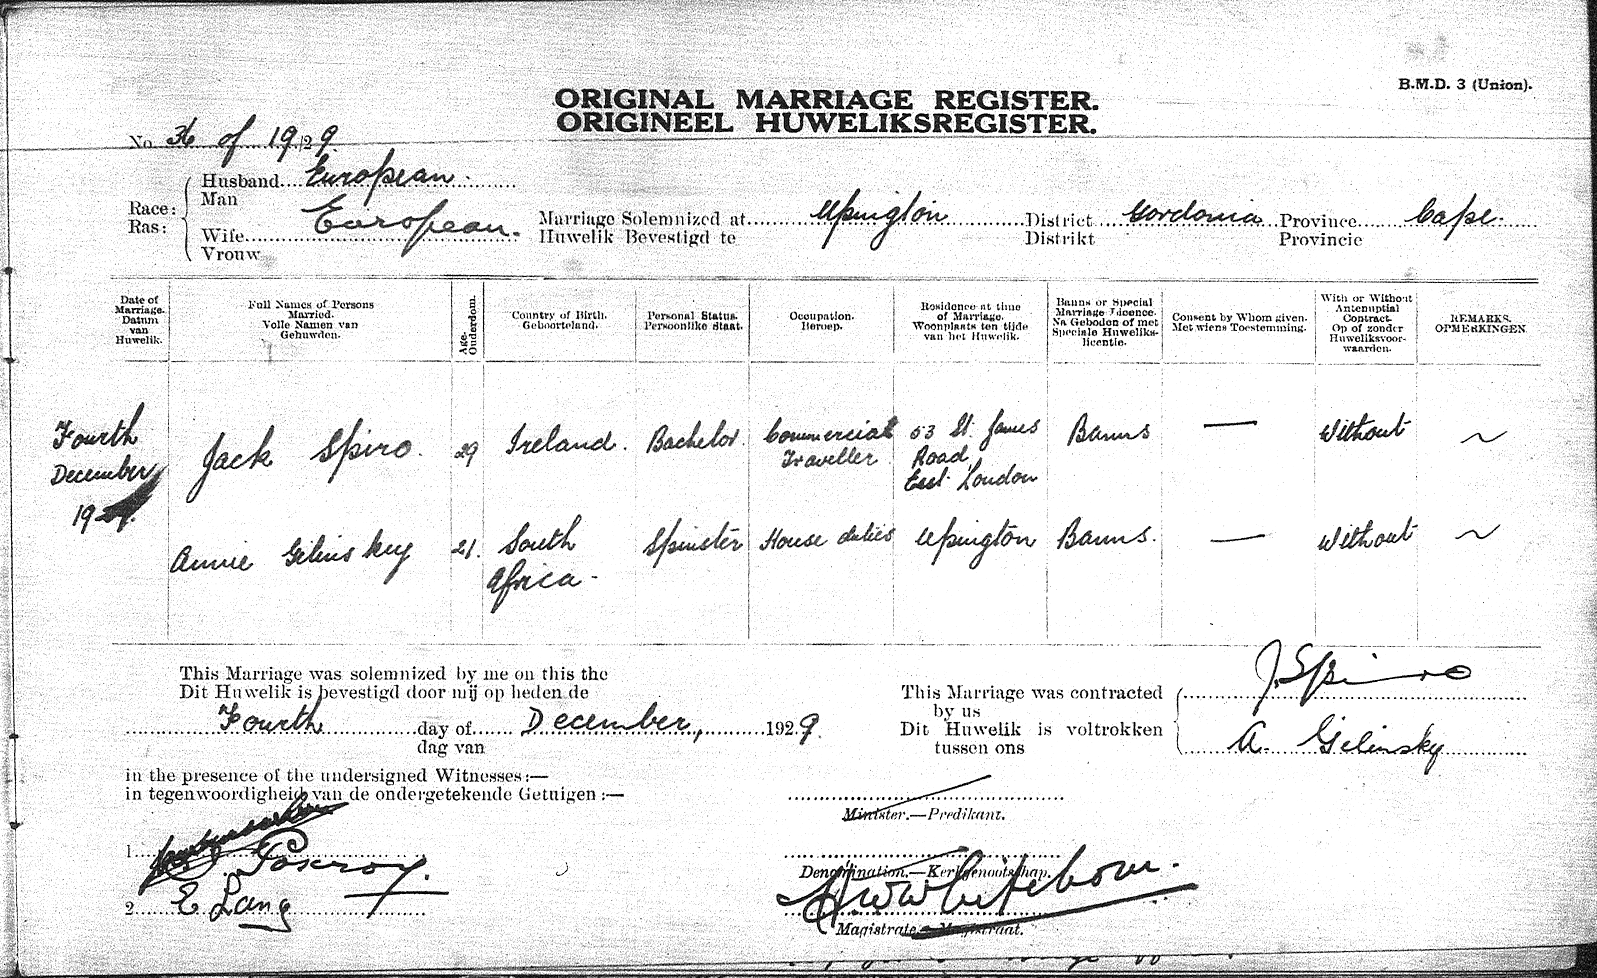 B.M.D. 3 (Union).
ORIGINAL MARRIAGE REGISTER.
ORIGINEEL HUWELIKSREGISTER.
No. 36 of 1929.
Race: Husband European.
Ras: Man
Wife European.
Vrouw
Marriage Solemnized at Upington District Gordonia Province Cape.
Huwelik Bevestigd te Distrikt Provincie
Date of Marriage. Datum van Huwelik.
Full Names of Persons Married. Volle Namen van Gehuwden.
Age. Ouderdom.
Country of Birth. Geboorteland.
Personal Status. Persoonlike Staat.
Occupation. Beroep.
Residence at time of Marriage. Woonplaats ten tijde van het Huwelik.
Banns or Special Marriage Licence. Na Geboden of met Speciale Huweliks-licentie.
Consent by Whom given. Met wiens Toestemming.
With or Without Antenuptial Contract. Op of zonder Huweliksvoor-waarden.
REMARKS. OPMERKINGEN
Fourth December 1929.
Jack Spiro. 29 Ireland. Bachelor. Commercial Traveller 53 St. James Road East London Banns — Without ~
Annie Gilinskey 21. South Africa - Spinster House duties Upington Banns. — Without ~
This Marriage was solemnized by me on this the
Dit Huwelik is bevestigd door mij op heden de
Fourth day of December, 1929.
dag van
This Marriage was contracted by us
Dit Huwelik is voltrokken tussen ons
J. Spiro
A. Gilinsky
in the presence of the undersigned Witnesses:—
in tegenwoordigheid van de ondergetekende Getuigen:—
1.
2. E Lang
Minister.—Predikant.
Denomination.—Kerkgenootschap.
Magistrate.—Magistraat.